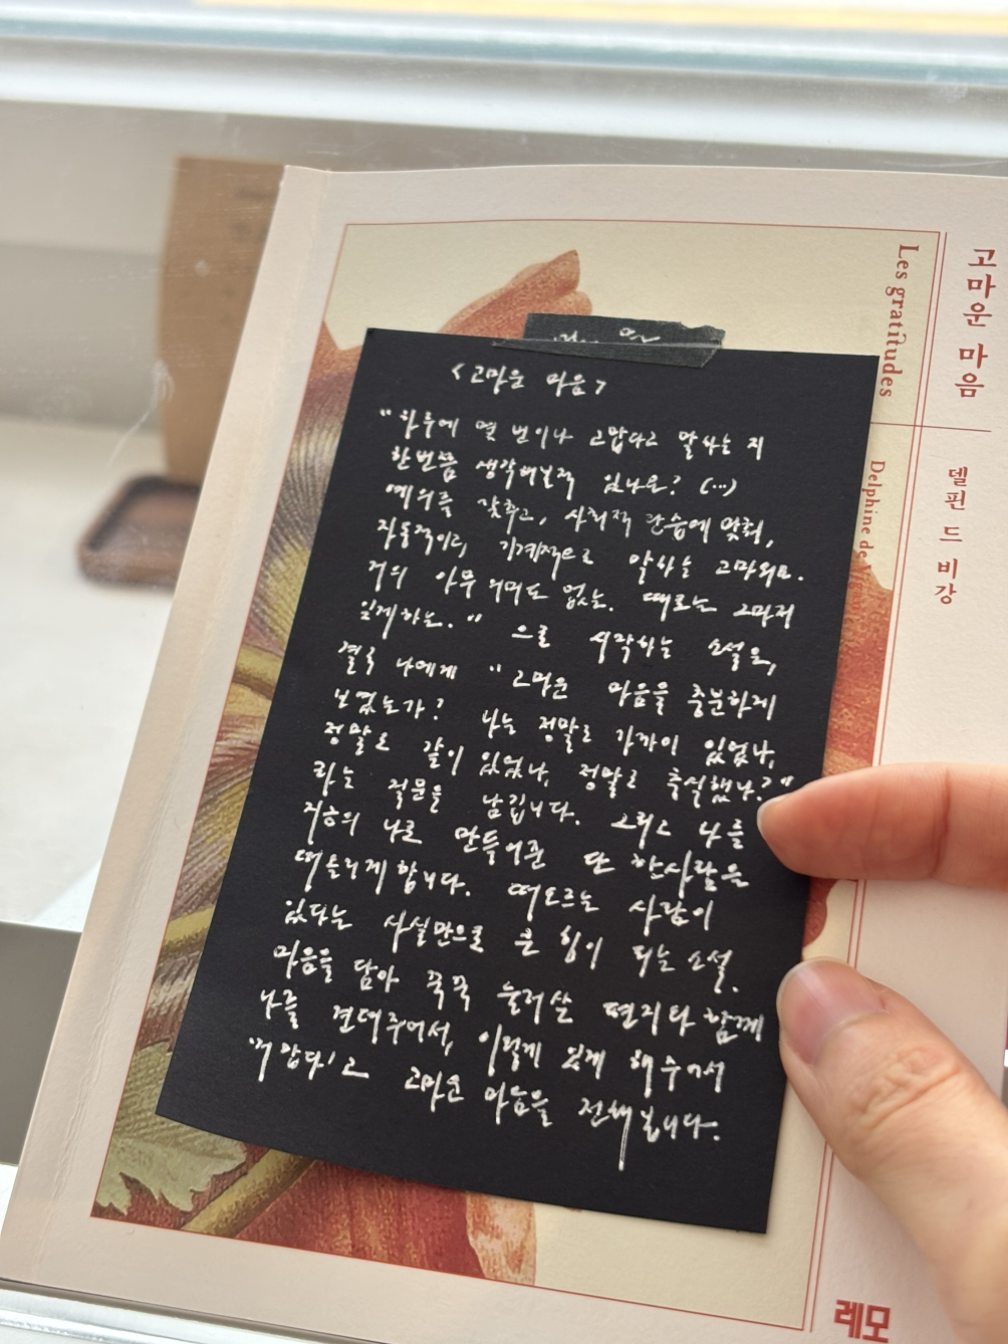 고마운 마음
Les gratitudes
델핀 드 비강
Delphine de
<고마운 마음>
"하루에 몇 번이나 고맙다고 말하는 지
한번쯤 생각해보적 있나요? (…)
예의를 갖추고, 사회적 관습에 맞춰,
자동적이고, 기계적으로 말하는 고마워요.
거의 아무 의미도 없는. 때로는 그마저
잊게하는." 으로 시작하는 소설은,
결국 나에게 "고마운 마음을 충분하게
보였는가? 나는 정말로 가까이 있었나,
정말로 같이 있었나, 정말로 충실했나?"
라는 질문을 남깁니다. 그리고 나를
지금의 나로 만들어준 또 한사람을
떠올리게합니다. 떠오르는 사람이
있다는 사실만으로 큰 힘이 되는 소설.
마음을 담아 꾹꾹 눌러쓴 편지와 함께
나를 견뎌주어서, 이렇게 있게 해주어서
'고맙다'고 고마운 마음을 전해봅니다.
레모